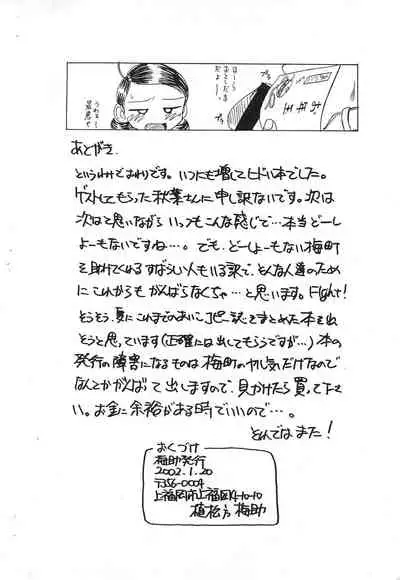 ほーら
おそしだま
だよー。
うれしー
最悪や
あとがき.
というわけでおわりです。いつにも増してヒドい本でした。
ゲストしてもらった秋葉さんに申し訳ないです。次は
次はと思いながら いっつもこんな感じで…本当どーし
よーもないですね…。でも、どーしよーもない梅町
を助けてくれるすばらしい人もいる訳で、そんな人達のため
に これからも がんばらなくちゃ…と思います。Fight!
そうそう、夏に これまでのあいこコピー誌をまとめた本を出
そうと思っています(正確には出してもらうですが…)本の
発行の障害になるものは梅町のやる気だけなので
なんとかがんばって出しますので、見かけたら買って下さ
い。お金に余裕がある時でいいので…。
それではまた!
おくづけ
梅助発行
2002.1.20
〒356-0004
上福岡市上福岡4-10-10
植松方 梅助